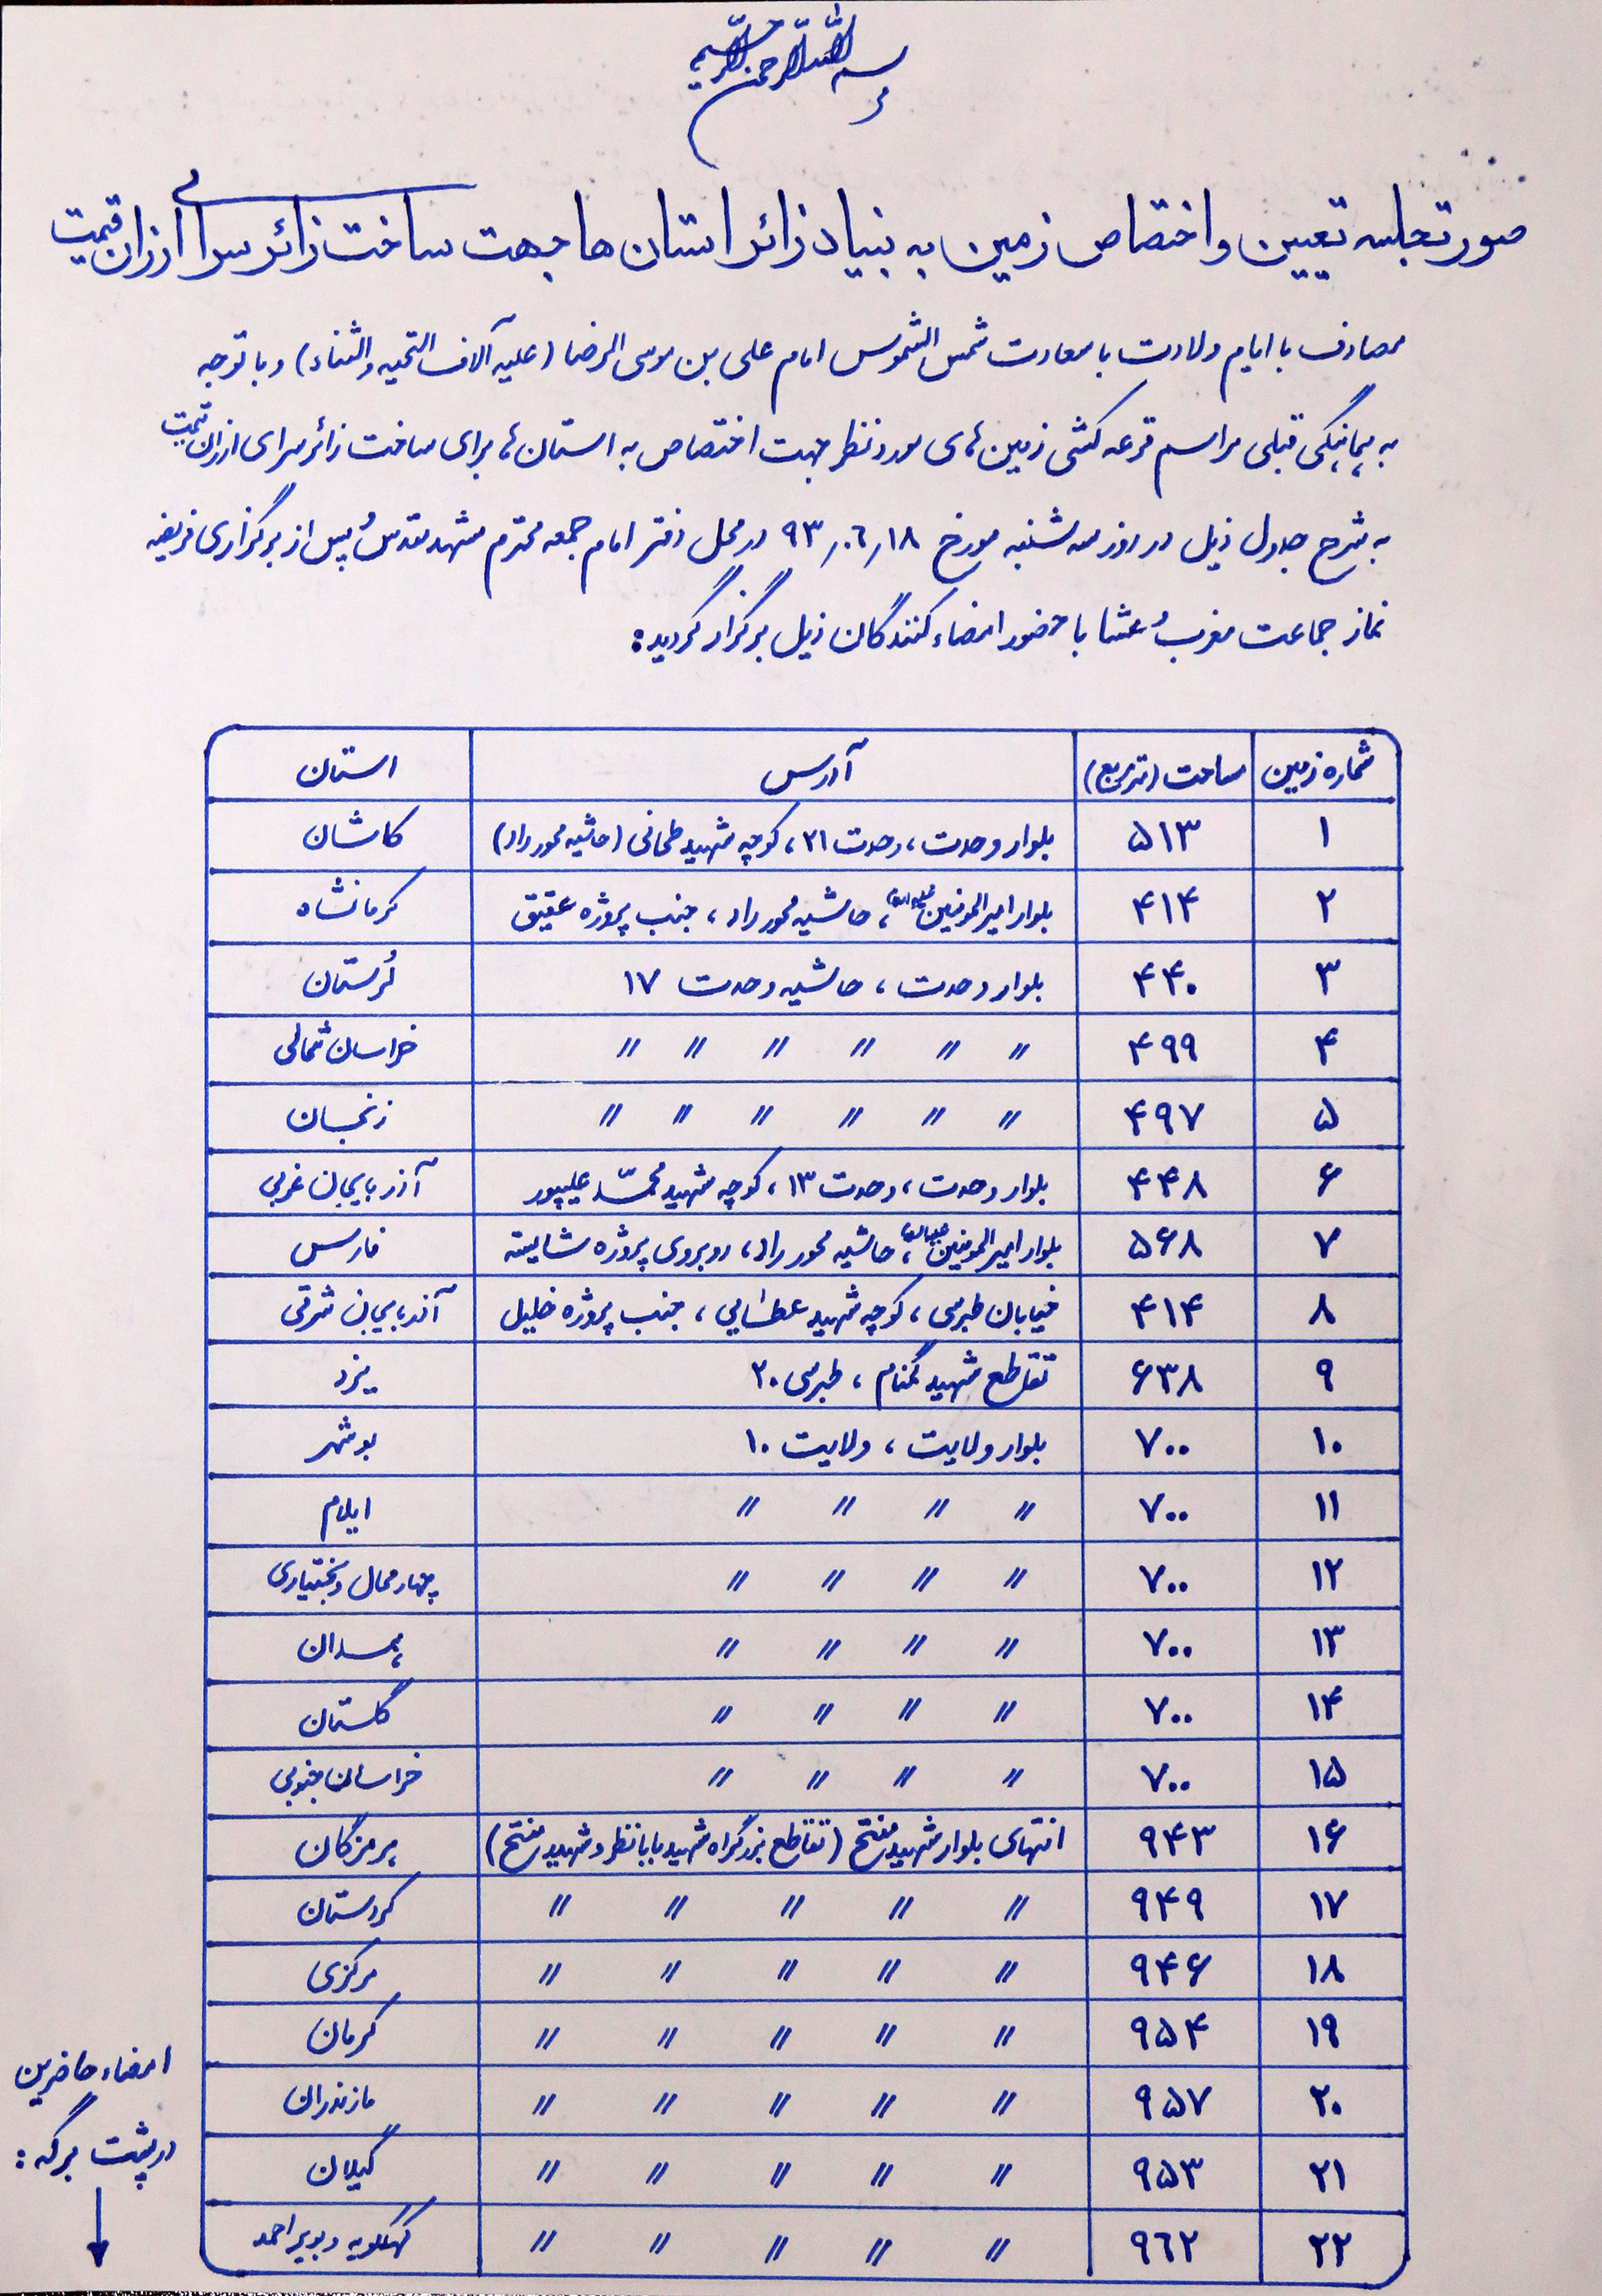 بسم الله الرحمن الرحیم
صورتجلسه تعیین و اختصاص زمین به بنیاد زائر استان ها جهت ساخت زائرسرای ارزان قیمت
مصادف با ایام ولادت با سعادت شمس الشموس امام علی بن موسی الرضا (علیه آلاف التحیه و الثناء) و با توجه
به هماهنگی قبلی مراسم قرعه کشی زمین های مورد نظر جهت اختصاص به استان ها، برای ساخت زائرسرای ارزان قیمت
به شرح جدول ذیل در روز سه شنبه مورخ ۹۳/۰۶/۱۸ در محل دفتر امام جمعه محترم مشهد مقدس و پس از برگزاری فریضه
نماز جماعت مغرب و عشا با حضور امضاء کنندگان ذیل برگزار گردید:
شماره زمین مساحت (مترمربع) آدرس استان
۱ ۵۱۳ بلوار وحدت، وحدت ۲۱، کوچه شهید طحانی (حاشیه محور راد) کاشان
۲ ۴۱۴ بلوار امیرالمومنین علیه السلام، حاشیه محور راد، جنب پروژه عقیق کرمانشاه
۳ ۴۴۰ بلوار وحدت، حاشیه وحدت ۱۷ لُرستان
۴ ۴۹۹ " " " " " " خراسان شمالی
۵ ۴۹۷ " " " " " " زنجان
۶ ۴۴۸ بلوار وحدت، وحدت ۱۳، کوچه شهید محمّد علیپور آذربایجان غربی
۷ ۵۶۸ بلوار امیرالمومنین علیه السلام، حاشیه محور راد، روبروی پروژه شایسته فارس
۸ ۴۱۴ خیابان طبرسی، کوچه شهید عطایی، جنب پروژه خلیل آذربایجان شرقی
۹ ۶۳۸ تقاطع شهید گمنام، طبرسی ۲۰ یزد
۱۰ ۷۰۰ بلوار ولایت، ولایت ۱۰ بوشهر
۱۱ ۷۰۰ " " " " ایلام
۱۲ ۷۰۰ " " " " چهارمحال و بختیاری
۱۳ ۷۰۰ " " " " همدان
۱۴ ۷۰۰ " " " " گلستان
۱۵ ۷۰۰ " " " " خراسان جنوبی
۱۶ ۹۴۳ انتهای بلوار شهید مفتح (تقاطع بزرگراه شهید بابانظر و شهید مفتح) هرمزگان
۱۷ ۹۴۹ " " " " " کردستان
۱۸ ۹۴۶ " " " " " مرکزی
۱۹ ۹۵۴ " " " " " کرمان
۲۰ ۹۵۷ " " " " " مازندران
۲۱ ۹۵۳ " " " " " گیلان
۲۲ ۹۶۲ " " " " " کهگیلویه و بویراحمد
امضاء حاضرین
در پشت برگه: